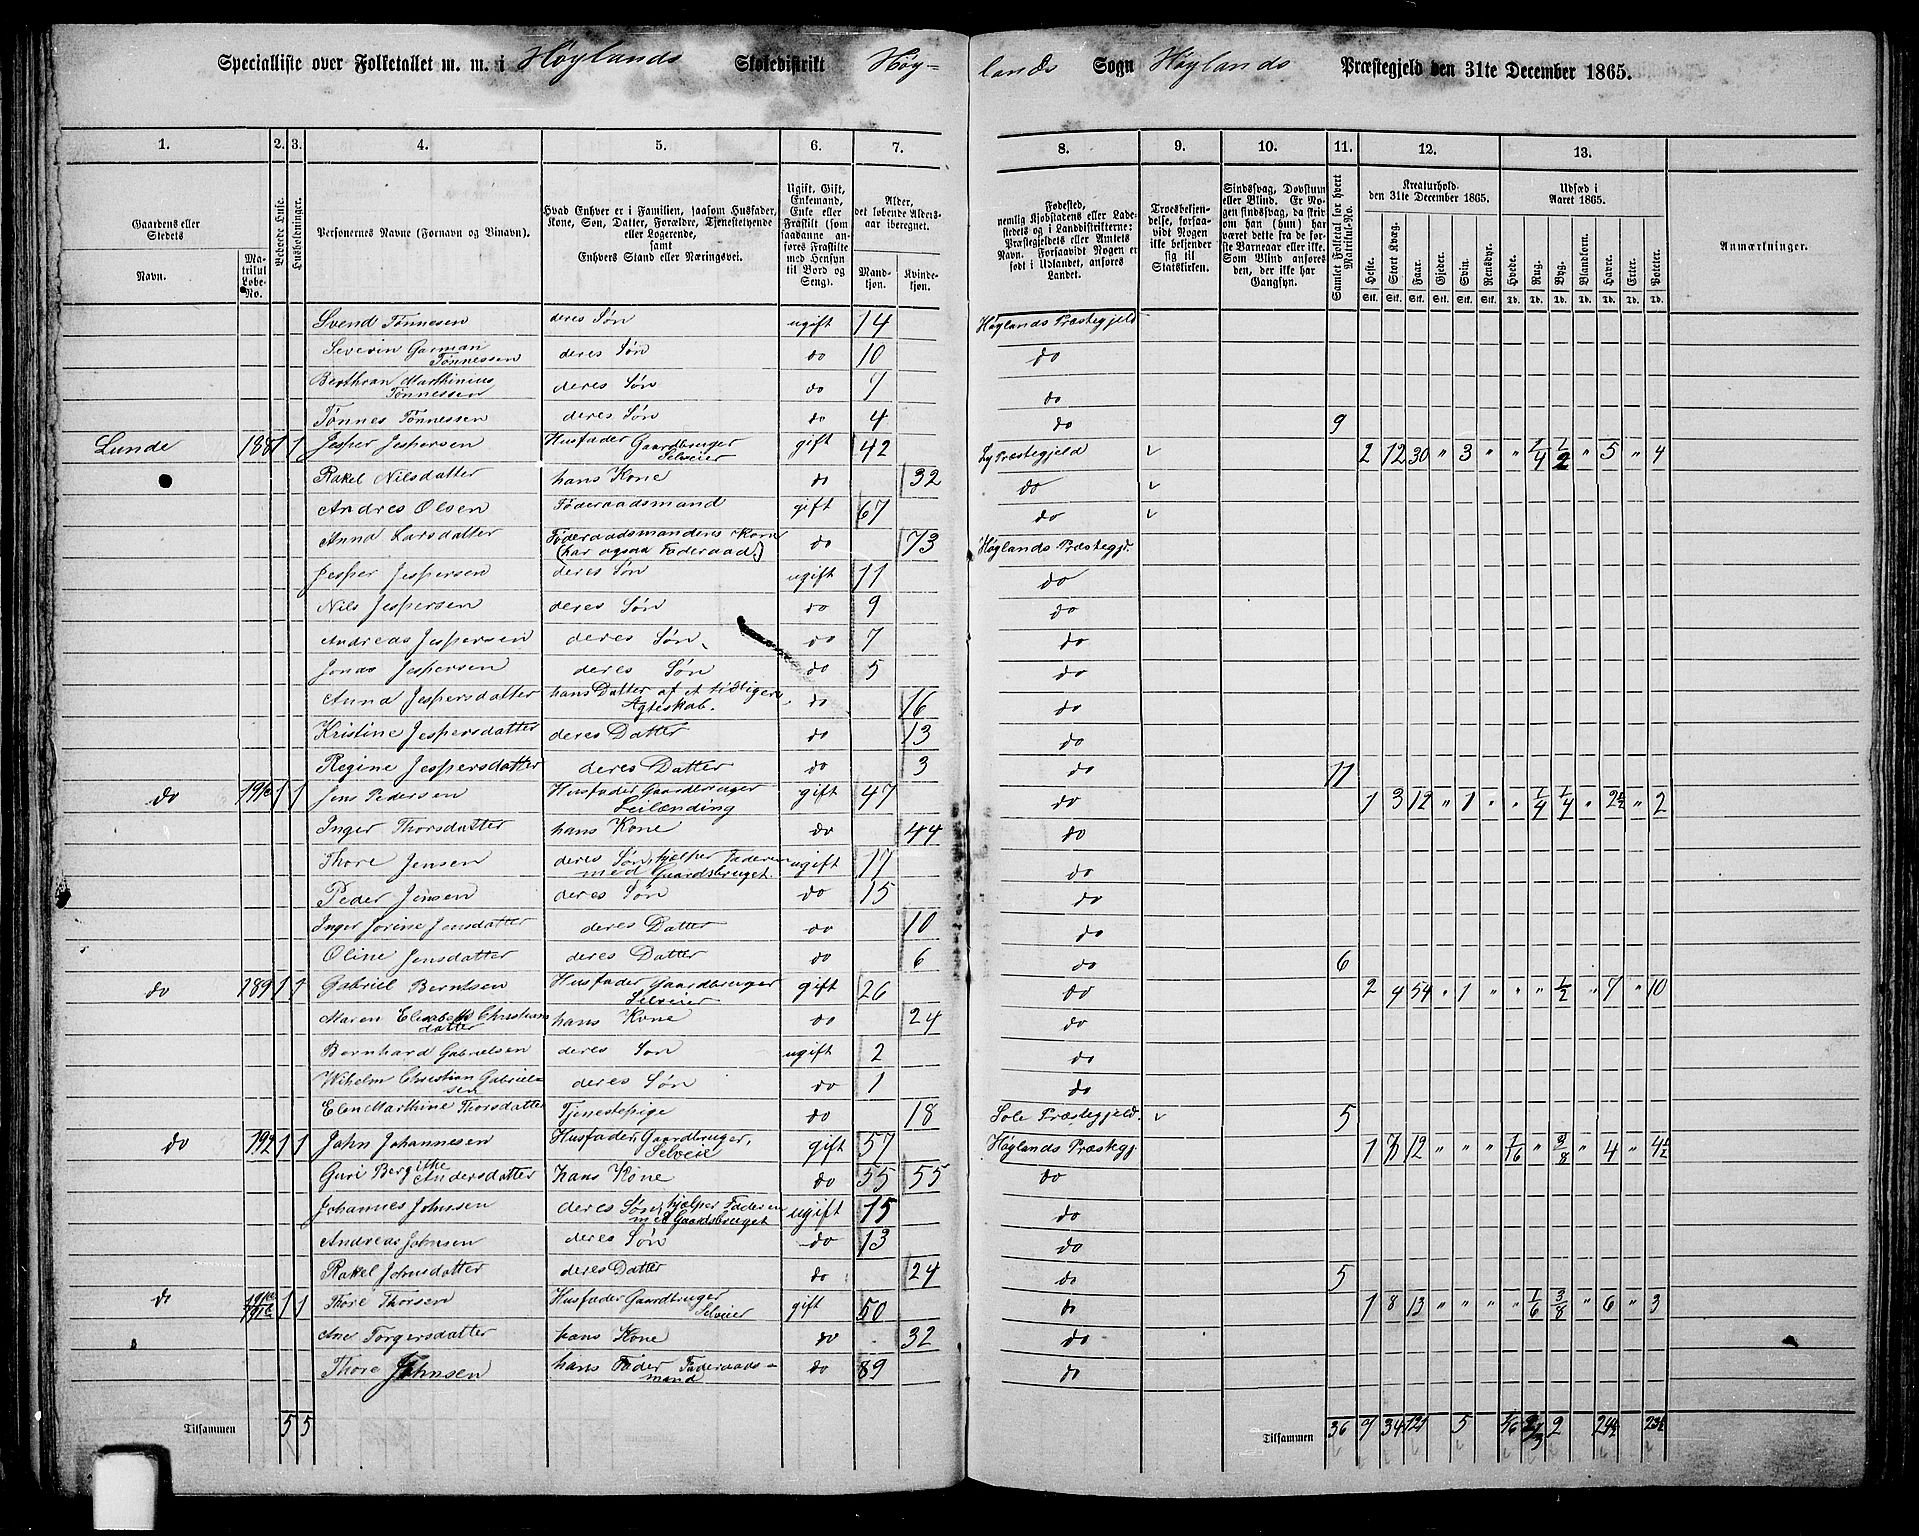 Specialliste over Folketallet m. m. i Høylands Skoledistrikt Høy- lands Sogn Høylands Præstegjeld den 31te December 1865.
1. 2. 3. 4. 5. 6. 7. 8. 9. 10. 11. 12. 13.
Gaardens eller Stedets Navn.
Matrikul Løbe-No.
Beboede Huse.
Husholdninger.
Personernes Navne (Fornavn og Vinavn).
Hvad Enhver er i Familien, saasom Husfader, Kone, Søn, Datter, Forældre, Tjenestetyende eller Logerende, samt Enhvers Stand eller Næringsvei.
Ugift, Gift, Enkemand, Enke eller Fraskilt (som saadanne anføres Fraskilte med Hensyn til Bord og Seng).
Alder, det løbende Alders-aar iberegnet.
Mandkjøn. Kvindekjøn.
Fødested, nemlig Kjøbstadens eller Ladestedets og i Landdistrikterne: Præstegjeldets eller Amtets Navn. Forsaavidt Nogen er født i Udlandet, anføres Landet.
Troesbekjendelse, forsaavidt Nogen ikke bekjender sig til Statskirken.
Sindssvag, Døvstum eller Blind. Er Nogen sindssvag, da skrives om han (hun) har været dette fra de første Barneaar eller ikke. Som Blind anføres den, der ikke har Gangsyn.
Samlet Folketal for hvert Matrikul-No.
Kreaturhold den 31te December 1865.
Udsæd i Aaret 1865.
Heste. Stort Kvæg. Faar. Gjeder. Svin. Rensdyr. Hvede. Rug. Byg. Blandkorn. Havre. Erter. Poteter.
Stk. Stk. Stk. Stk. Stk. Stk. Td. Td. Td. Td. Td. Td. Td.
Anmærkninger.
Svend Tønnesen deres Søn ugift 14 Høylands Præstegjeld
Severin Garman Tønnessen deres Søn do 10 do
Berthran Marthinius Tønnessen deres Søn do 7 do
Tønnes Tønnessen deres Søn do 4 do 9
Lunde 188 1 1 Jesper Jespersen Husfader Gaardbruger Selveier gift 42 Ly Præstegjeld 2 12 30 " 3 " " 1/4 1/2 " 5 " 4
Rakel Nilsdatter hans Kone do 32 do
Andres Olsen Føderaadsmand gift 67 do
Anna Larsdatter Føderaadsmandens Kone (har ogsaa Føderaad.) do 73 Høylands Præstegj.
Jesper Jespersen deres Søn ugift 11 do
Nils Jespersen deres Søn do 9 do
Andreas Jespersen deres Søn do 7 do
Jonas Jespersen deres Søn do 5 do
Anna Jespersdatter hans Datter af et tidligere Ægteskab. do 16 do
Kristine Jespersdatter deres Datter do 13 do
Regine Jespersdatter deres Datter do 3 do 11
do 191a 1 1 Jens Pedersen Husfader Gaardbruger Leilænding gift 47 do 1 3 12 " 1 " " 1/4 1/4 " 2 1/2 " 2
Inger Thorsdatter hans Kone do 44 do
Thore Jensen deres Søn, hjelper Faderen med Gaardsbruget. ugift 17 do
Peder Jensen deres Søn do 15 do
Inger Jorine Jensdatter deres Datter do 10 do
Oline Jensdatter deres Datter do 6 do 6
do 189 1 1 Gabriel Berntsen Husfader Gaardbruger Selveier gift 26 do 2 9 54 " 1 " " " 1/2 " 7 " 10
Maren Elisabeth Christiansdatter hans Kone do 24 do
Bernhard Gabrielsen deres Søn ugift 2 do
Wilhelm Christian Gabrielsen deres Søn do 1 do
Elen Marthine Thorsdatter Tjenestepige do 18 Sole Præstegjeld. 5
do 192 1 1 John Johannesen Husfader, Gaardbruger, Selveier gift 57 Høylands Præstegj. 1 7 12 " " " 1/6 3/8 " 4 " 4 1/2
Guri Bergithe Andersdatter hans Kone do 55 55 do
Johannes Johnsen deres Søn, hjælper Faderen med Gaardsbruget ugift 15 do
Andreas Johnsen deres Søn do 13 do
Rakel Johnsdatter deres Datter do 24 do 5
do 1 1 Thore Thorsen Husfader Gaardbruger Selveier gift 50 do 1 8 13 " " " " 1/6 3/8 " 6 " 3
Ane Torgersdatter hans Kone do 32 do
Thore Johnsen hans Fader Føderaadsmand do 89 do
Tilsammen 5 5 Tilsammen 36 9 34 121 5 1/6 2 24 1/2 23 1/2